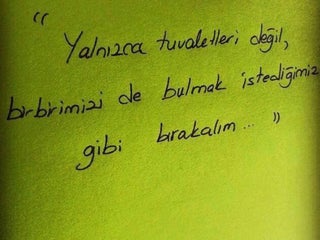 “ Yalnızca tuvaletleri değil,
birbirimizi de bulmak istediğimiz
gibi bırakalım... ”